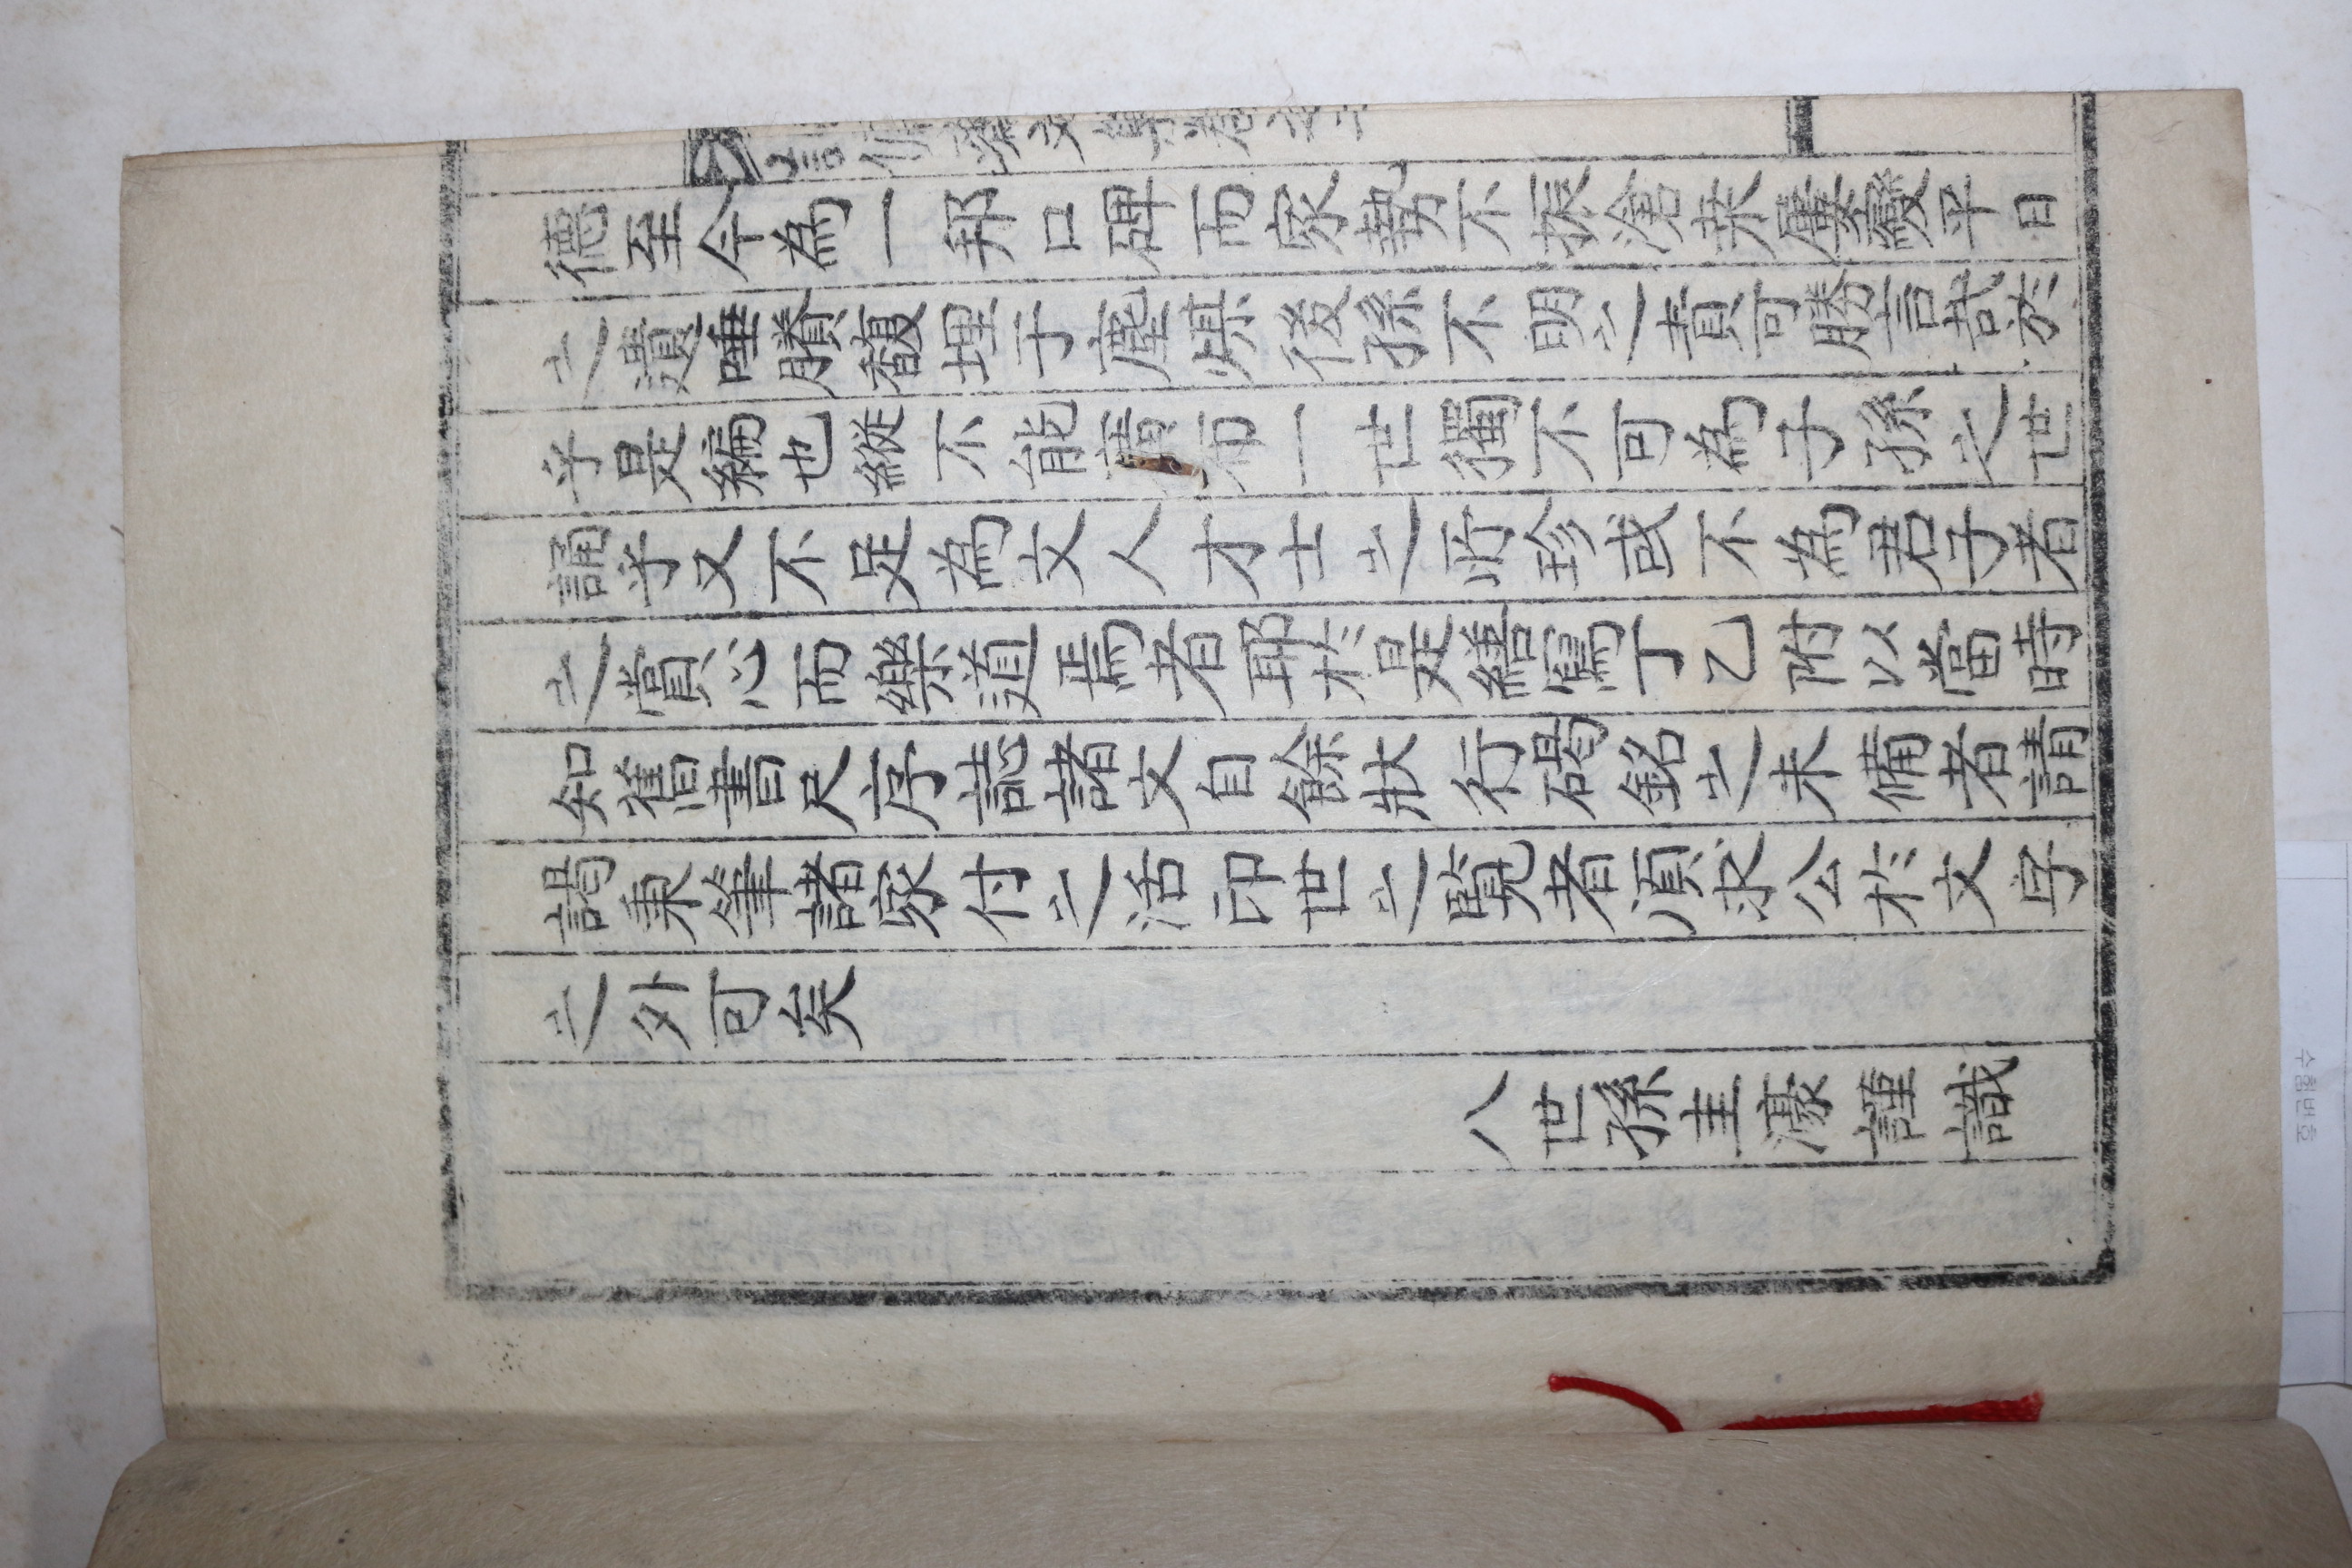 文集卷之二
德至今為一邦口碑而家勢不振滄桒屢變平日
之遺唾賸馥埋于塵煤後孫不明之責可勝言哉於
乎是編也縱不能廣布一世獨不可為子孫之世
誦乎又不足為文人才士之所珍或不為君子者
之賞心而樂道焉者耶於是繕寫丁乙附以當時
知舊書尺序誌諸文自餘狀行碣銘之未備者請
謁秉筆諸家付之活印世之覽者湏求公於文字
之外可矣
八世孫圭濠謹識
수험번호